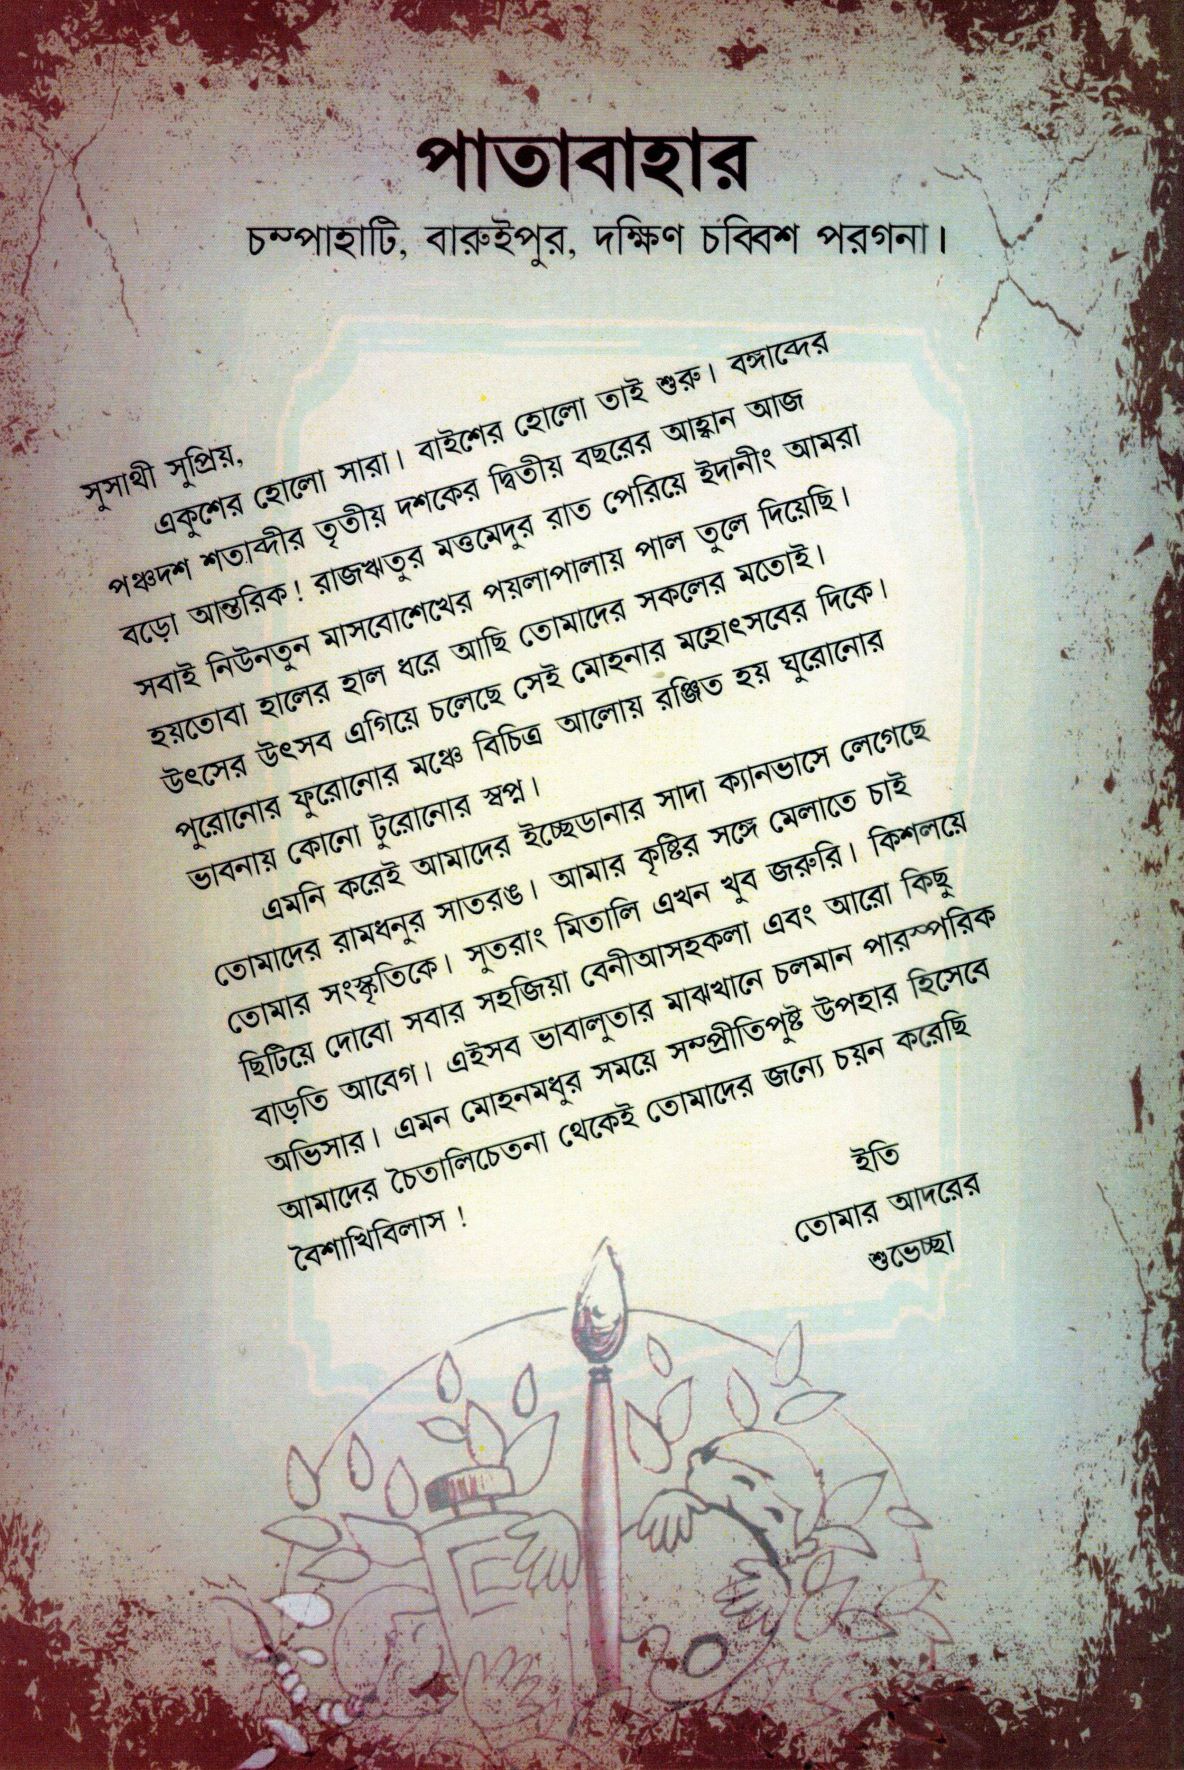 পাতাবাহার
চম্পাহাটি, বারুইপুর, দক্ষিণ চব্বিশ পরগনা।
সুসাথী সুপ্রিয়,
একুশের হোলো সারা। বাইশের হোলো তাই শুরু। বঙ্গাব্দের
পঞ্চদশ শতাব্দীর তৃতীয় দশকের দ্বিতীয় বছরের আহ্বান আজ
বড়ো আন্তরিক! রাজঋতুর মত্তমেদুর রাত পেরিয়ে ইদানীং আমরা
সবাই নিউনতুন মাসবোশেখের পয়লাপালায় পাল তুলে দিয়েছি।
হয়তোবা হালের হাল ধরে আছি তোমাদের সকলের মতোই।
উৎসের উৎসব এগিয়ে চলেছে সেই মোহনার মহোৎসবের দিকে।
পুরোনোর ফুরোনোর মঞ্চে বিচিত্র আলোয় রঞ্জিত হয় ঘুরোনোর
ভাবনায় কোনো টুরোনোর স্বপ্ন।
এমনি করেই আমাদের ইচ্ছেডানার সাদা ক্যানভাসে লেগেছে
তোমাদের রামধনুর সাতরঙ। আমার কৃষ্টির সঙ্গে মেলাতে চাই
তোমার সংস্কৃতিকে। সুতরাং মিতালি এখন খুব জরুরি। কিশলয়ে
ছিটিয়ে দোবো সবার সহজিয়া বেনীআসহকলা এবং আরো কিছু
বাড়তি আবেগ। এইসব ভাবালুতার মাঝখানে চলমান পারস্পরিক
অভিসার। এমন মোহনমধুর সময়ে সম্প্রীতিপুষ্ট উপহার হিসেবে
আমাদের চৈতালিচেতনা থেকেই তোমাদের জন্যে চয়ন করেছি
বৈশাখিবিলাস !
ইতি
তোমার আদরের
শুভেচ্ছা